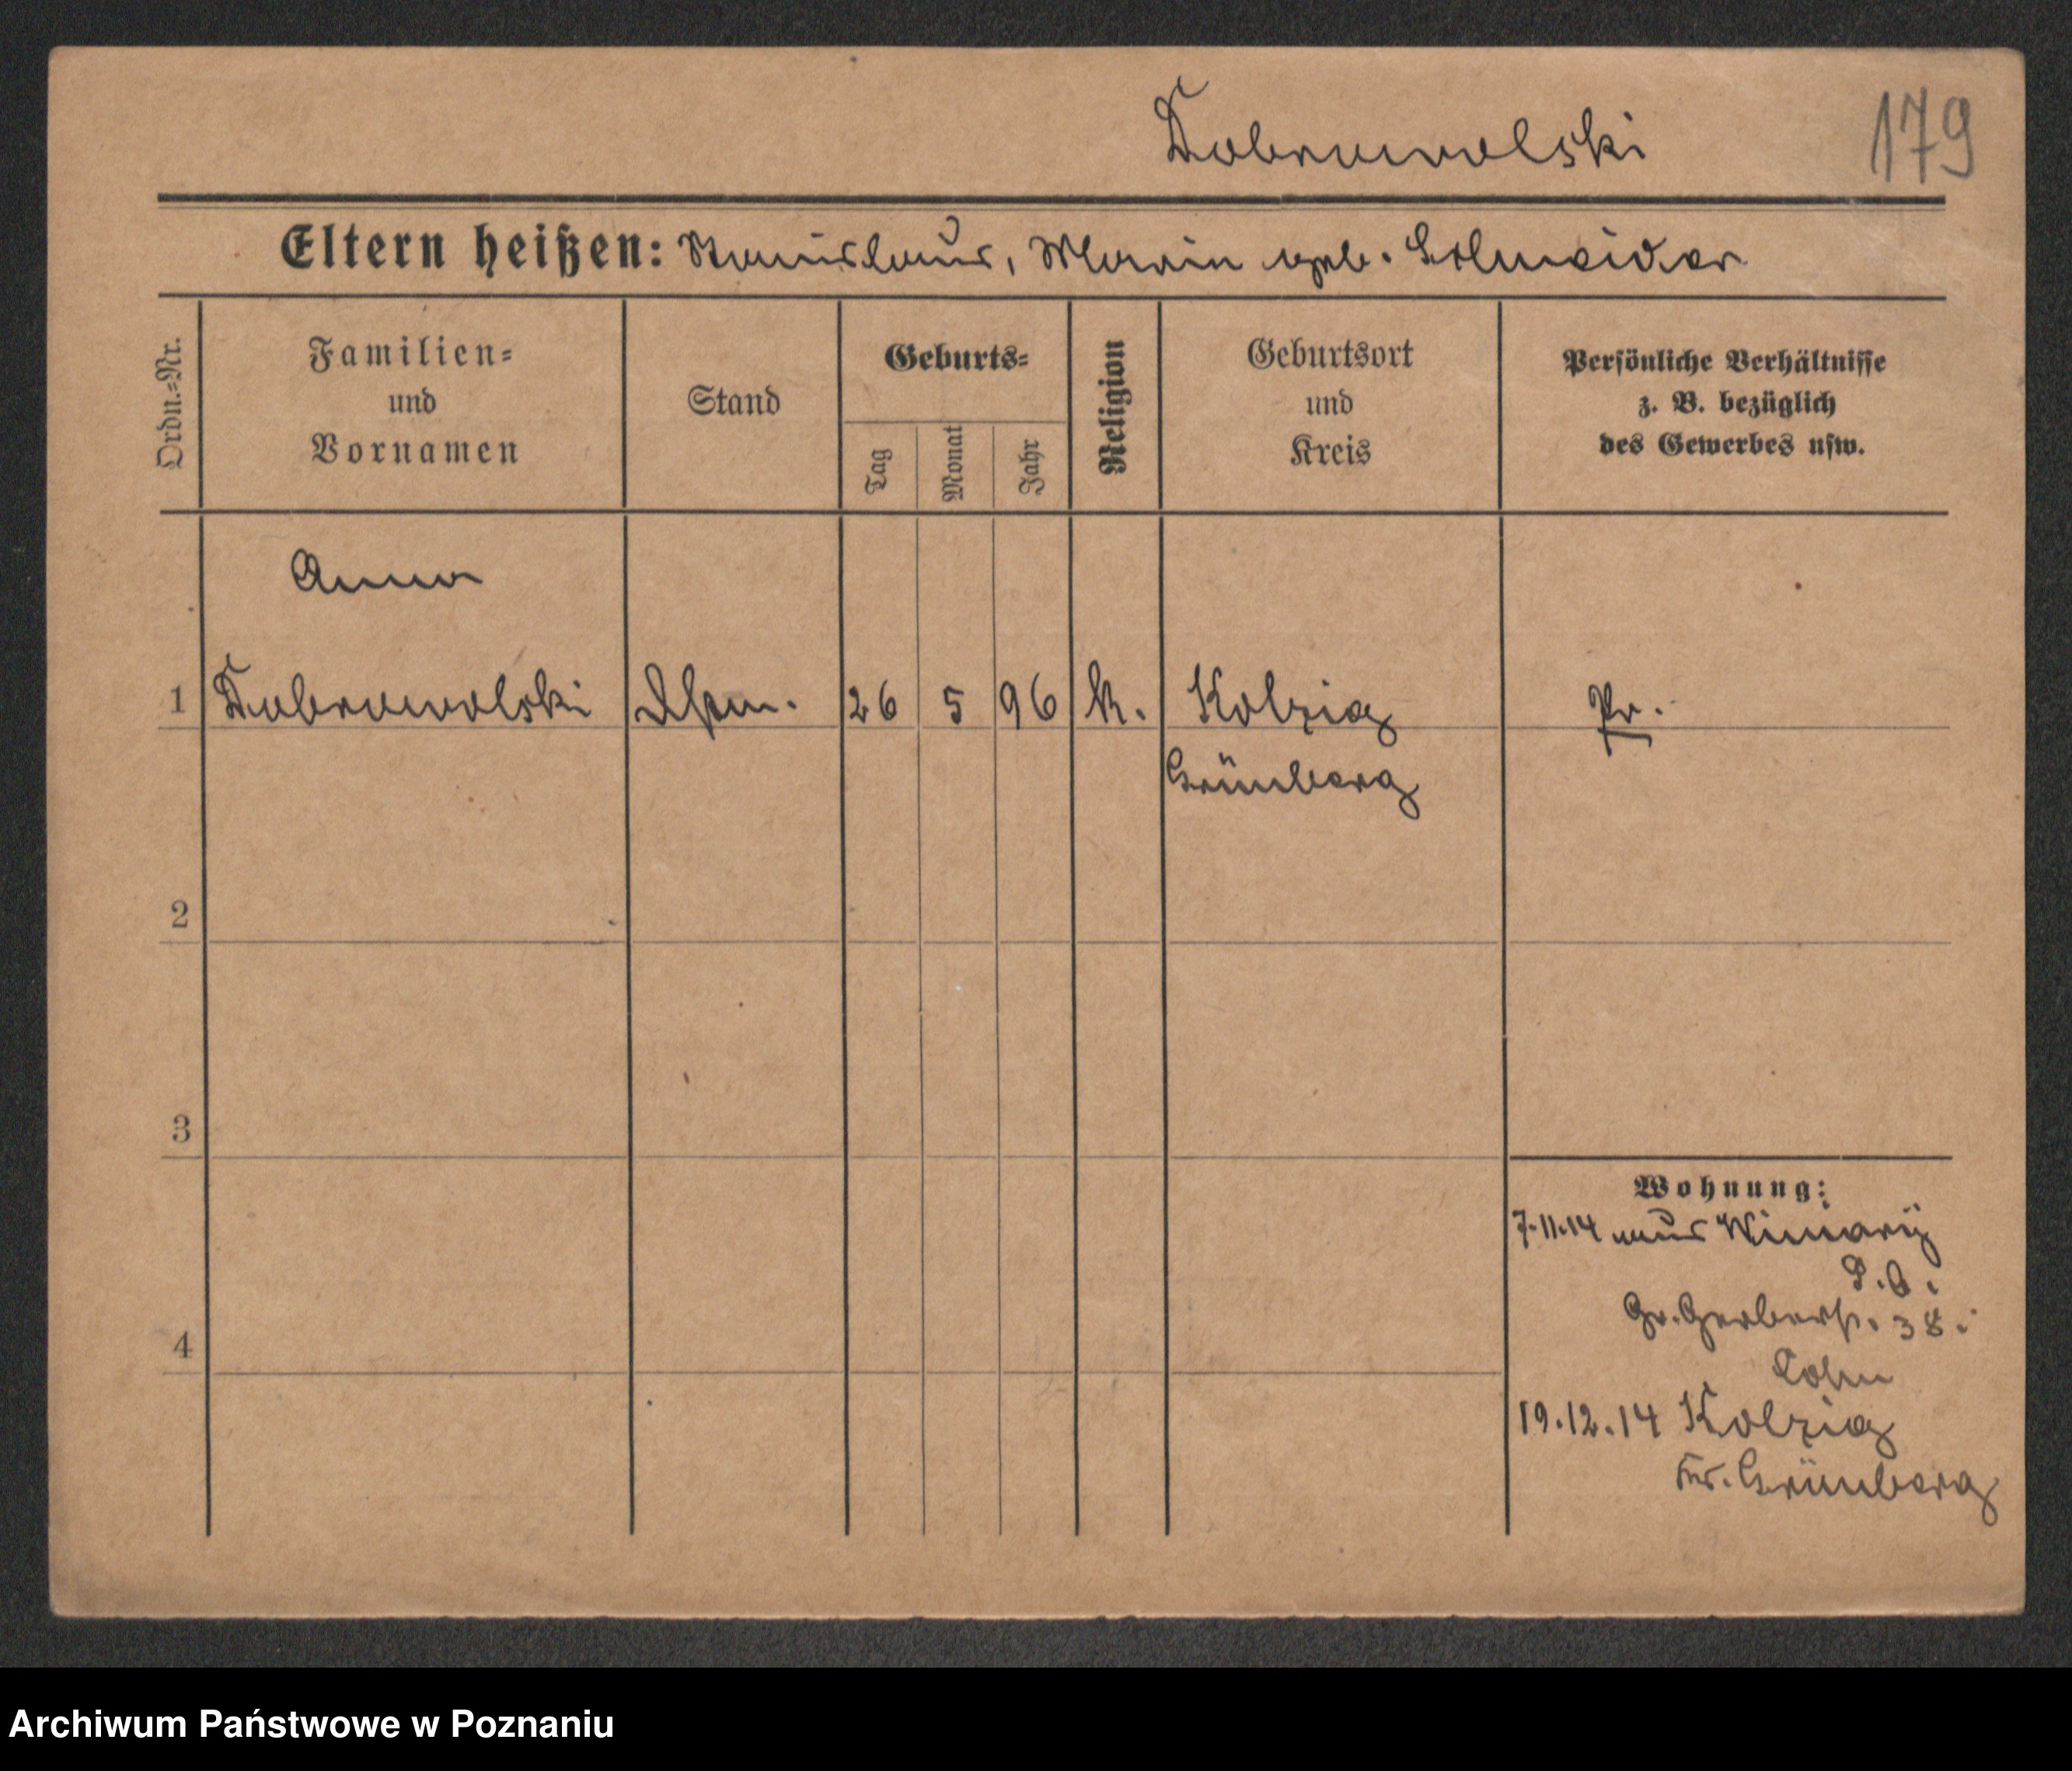 Dobrowolski
179
Eltern heißen: Stanislaus, Maria geb. Schneider
Ordn.=Nr.
Familien=
und
Vornamen
Stand
Geburts=
Tag
Monat
Jahr
Religion
Geburtsort
und
Kreis
Persönliche Verhältnisse
z. B. bezüglich
des Gewerbes usw.
Anna
1 Dobrowolski 26 5 96 k. Kolzig Pr.
Grünberg
2
3
4
Wohnung:
7.11.14 aus
Gr. Gerberstr. 38.
Cohn
19.12.14 Kolzig
Kr. Grünberg
Archiwum Państwowe w Poznaniu